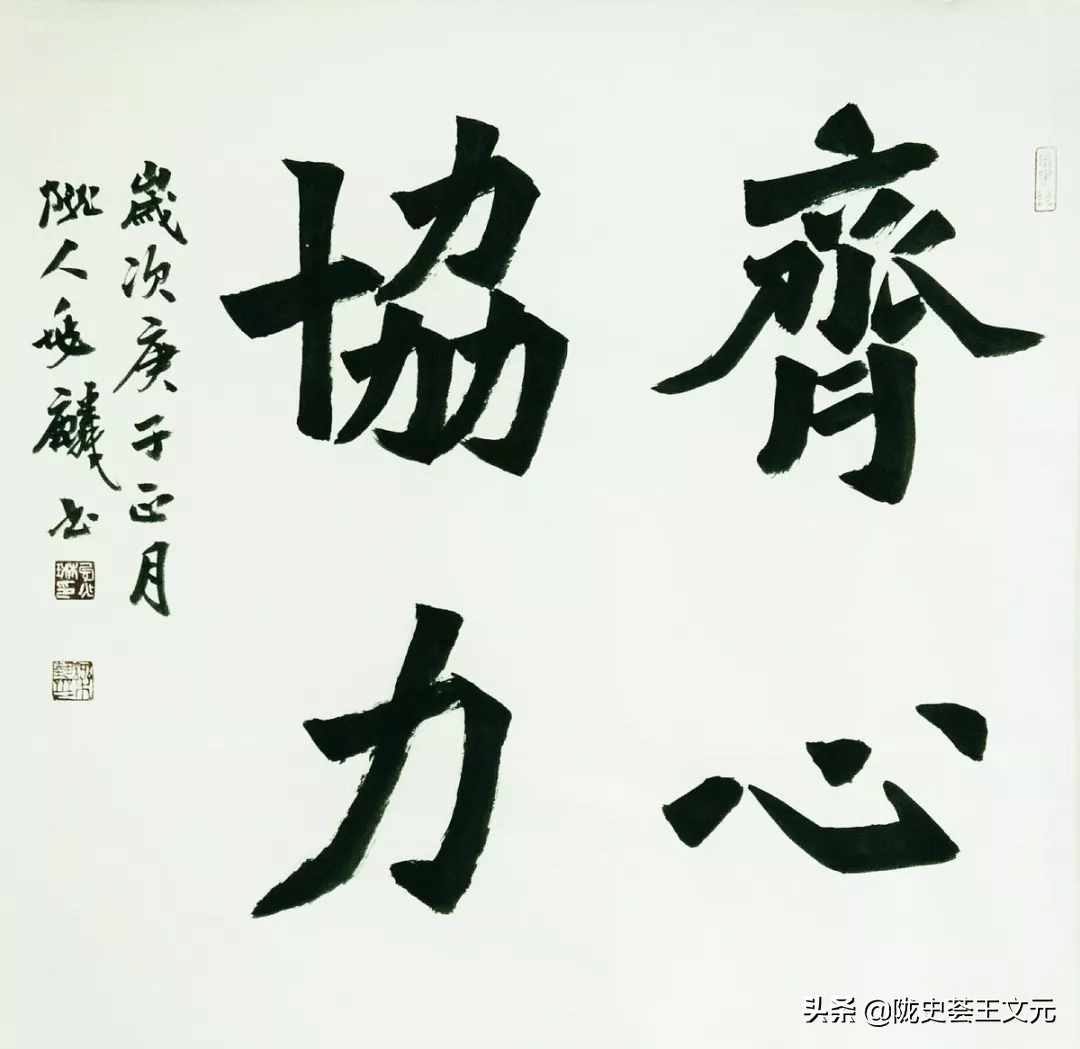 齊心
協力
歲次庚子正月
陇人麟书
头条 @陇史荟王文元